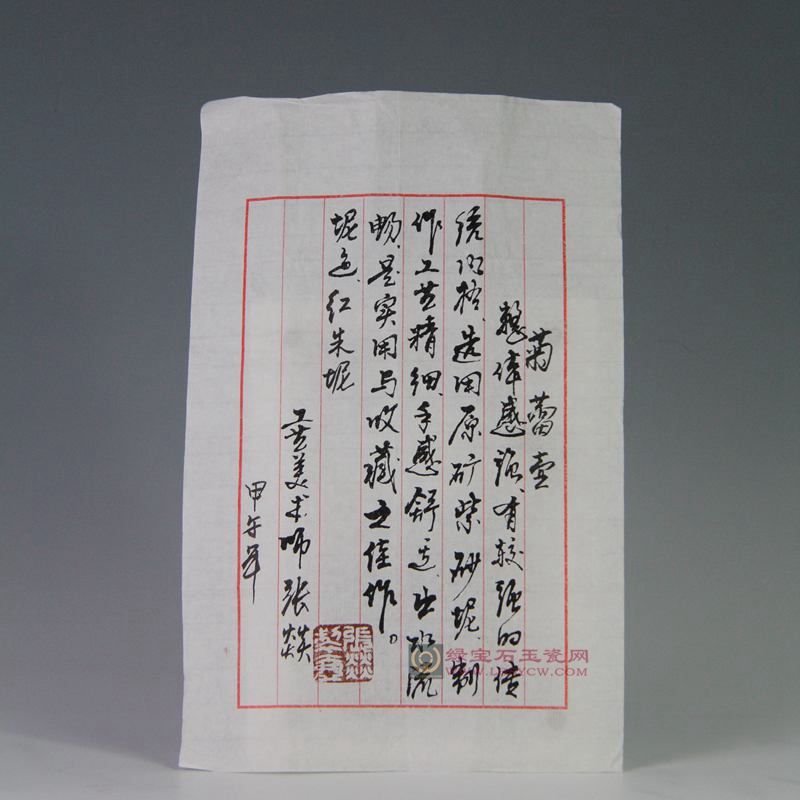 菊蕾壶
整体感强、有较强的传
统风格、选用原矿紫砂坭、制
作工艺精细、手感舒适、出水流
畅、是实用与收藏之佳作。
坭色、红朱坭
工艺美术师张燚
甲午年
绿宝石玉瓷网